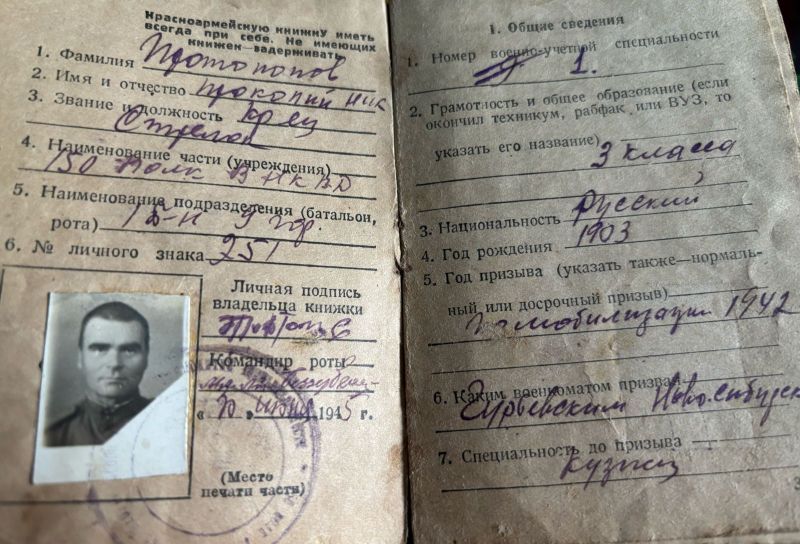 Красноармейскую книжку иметь
всегда при себе. Не имеющих
книжек—задерживать
1. Фамилия Протопопов
2. Имя и отчество Прокопий Ник
3. Звание и должность Кр-ец
Стрелок
4. Наименование части (учреждения)
150 Полк В НКВД
5. Наименование подразделения (батальон,
рота) 1 Б-н
6. № личного знака 251
Личная подпись
владельца книжки
Командир роты
„30" 1945 г.
(Место
печати части)
1. Общие сведения
1. Номер военно-учетной специальности
1.
2. Грамотность и общее образование (если
окончил техникум, рабфак или ВУЗ, то
указать его название)
3 класса
3. Национальность Русский
4. Год рождения 1903
5. Год призыва (указать также—нормаль-
ный или досрочный призыв)
По мобилизации 1942
6. Каким военкоматом призван
Гурьевским Новосибирск
7. Специальность до призыва
Кузнец
3